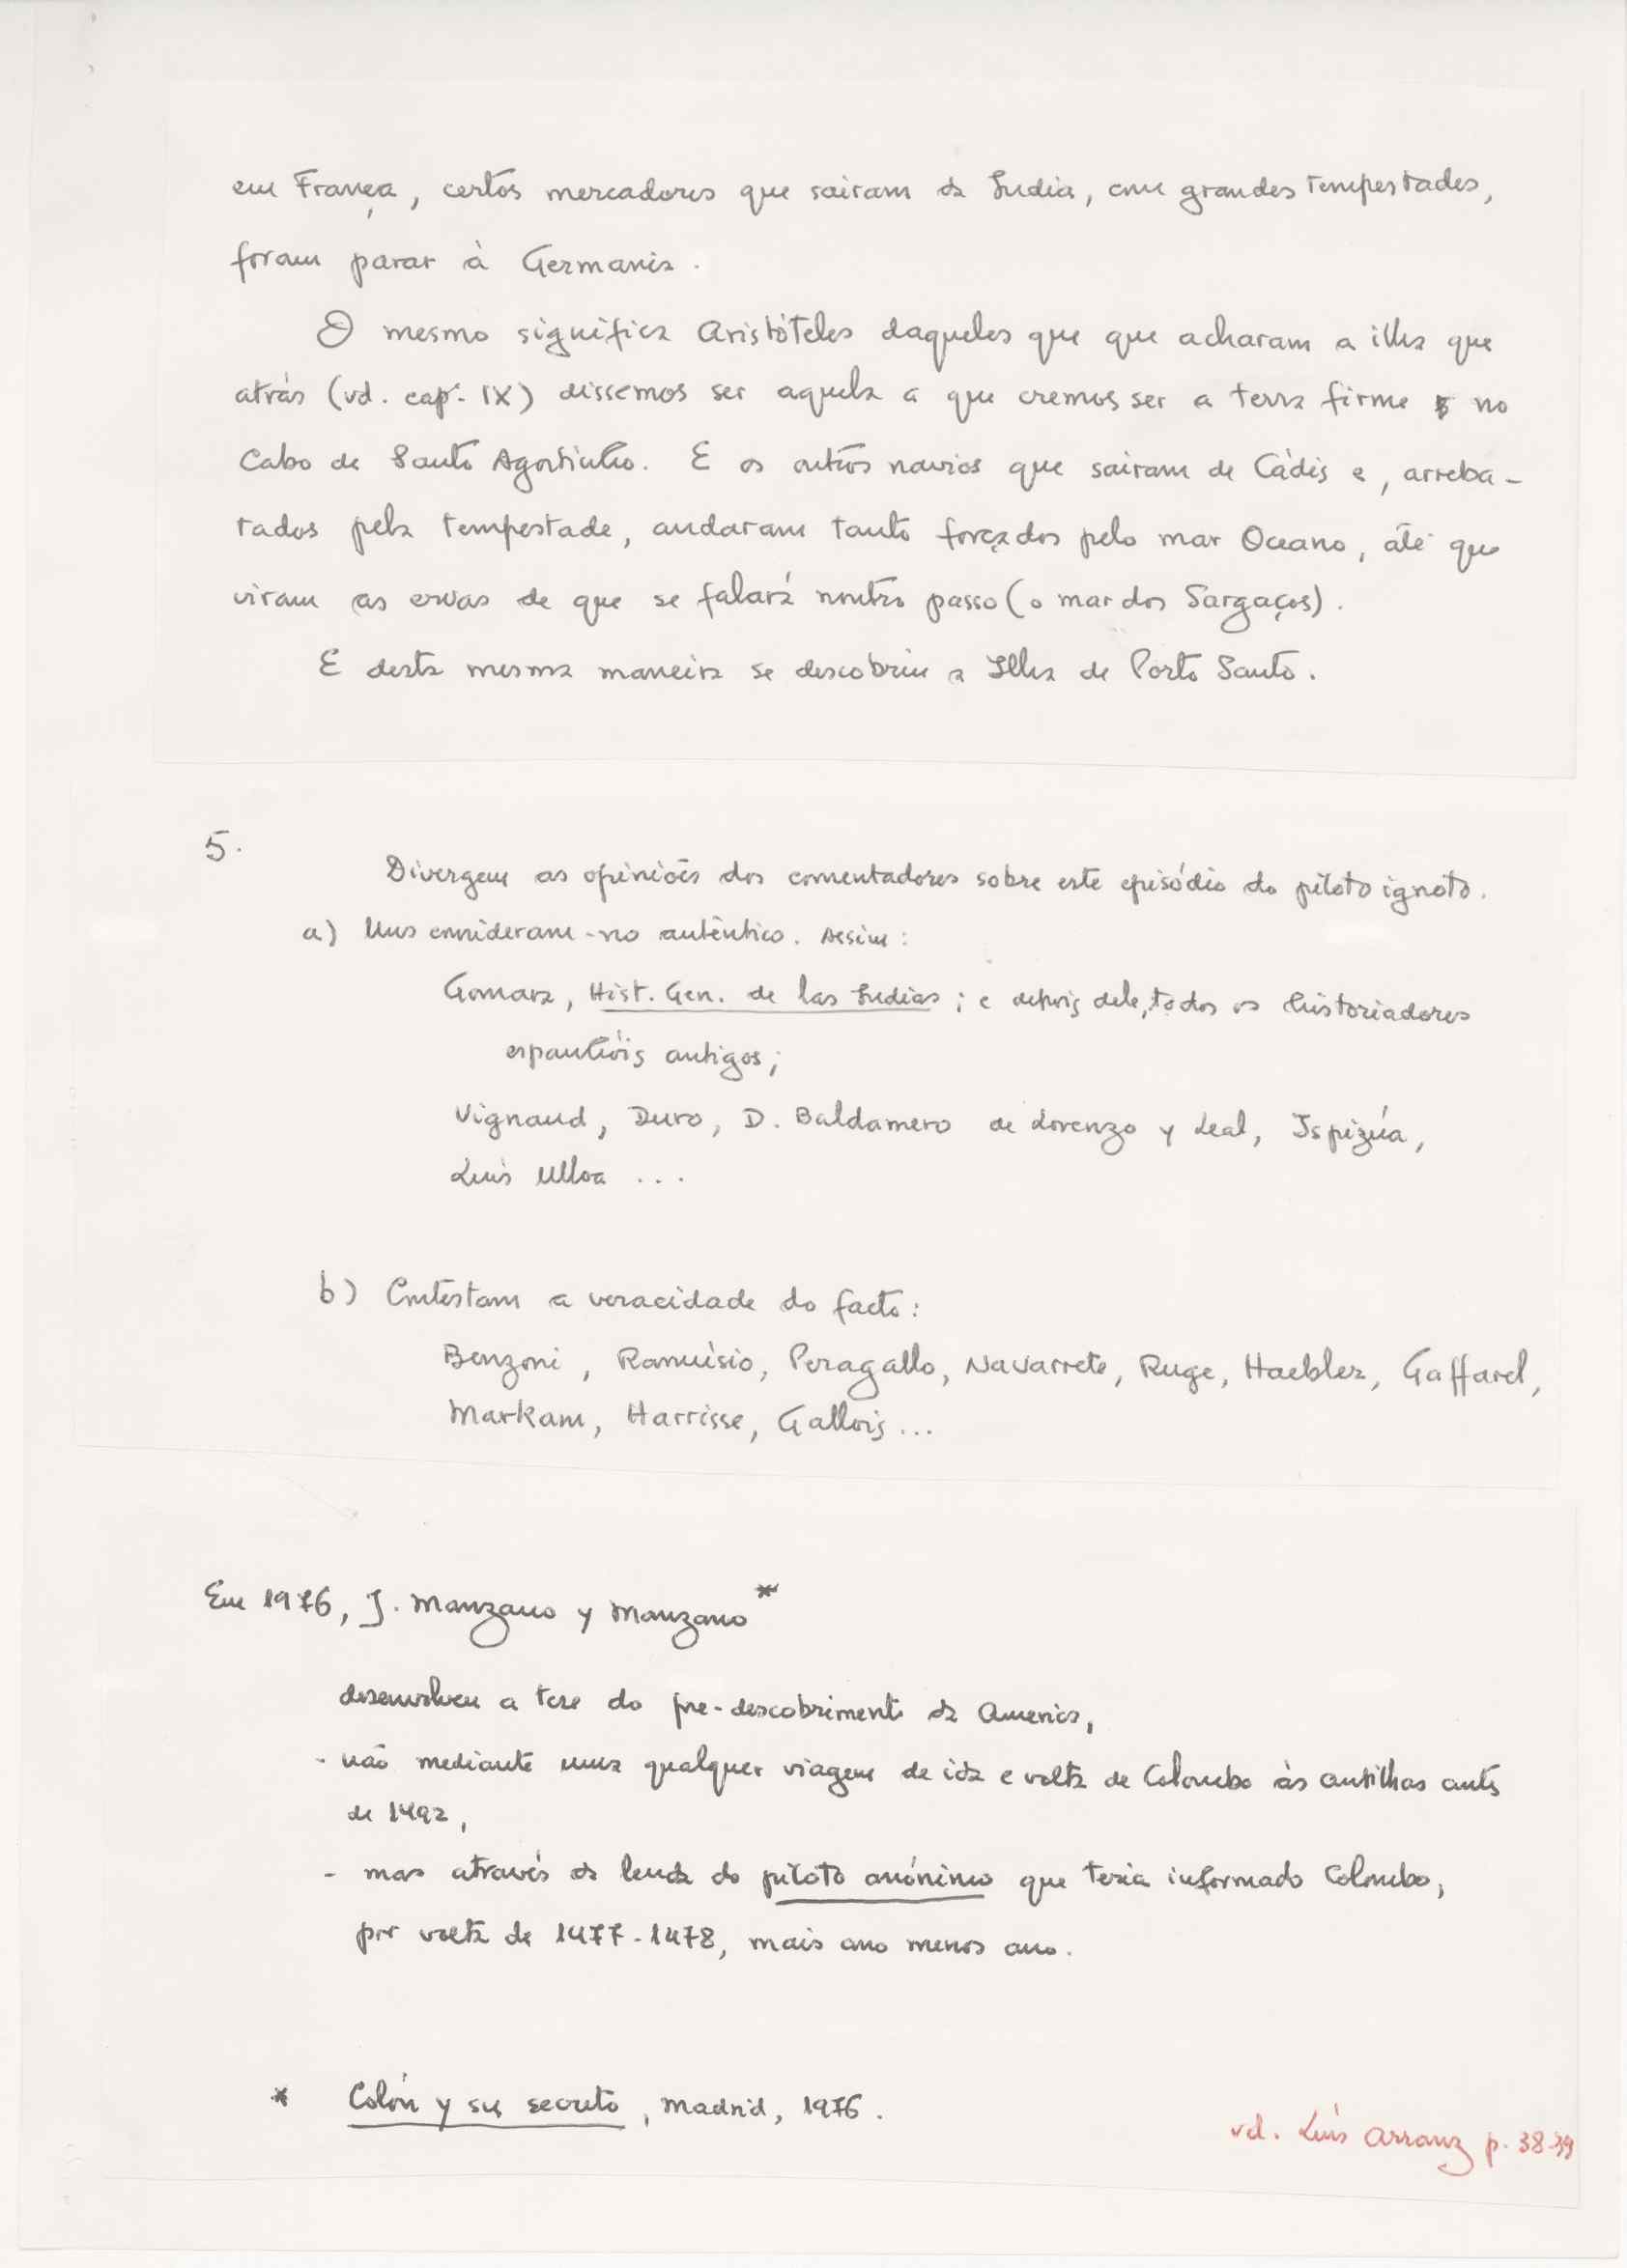 em França, certos mercadores que sairam da India, com grandes tempestades,
foram parar à Germania.
O mesmo significa Aristóteles daqueles que que acharam a ilha que
atrás (vd. cap. IX) dissemos ser aquela a que cremos ser a terra firme no
Cabo de Santo Agostinho. E os outros navios que sairam de Cádis e, arreba-
tados pela tempestade, andaram tanto forçados pelo mar Oceano, até que
viram as ervas de que se falará noutro passo (o mar dos Sargaços).
E desta mesma maneira se descobriu a Ilha de Porto Santo.
5.
Divergem as opiniões dos comentadores sobre este episódio do piloto ignoto.
a) Uns consideram-no autêntico. Assim:
Gomara, Hist. Gen. de las Indias; e depois dele, todos os historiadores
espanhóis antigos;
Vignaud, Duro, D. Baldamero de Lorenzo y Leal, Ispizúa,
Luis Ulloa ...
b) Contestam a veracidade do facto:
Benzoni, Ramúsio, Peragallo, Navarrete, Ruge, Haebler, Gaffarel,
Markam, Harrisse, Gallois ...
Em 1976, J. Manzano y Manzano *
desenvolveu a tese do pre-descobrimento da America,
- não mediante uma qualquer viagem de ida e volta de Colombo às Antilhas antes
de 1492,
- mas através da lenda do piloto anónimo que teria informado Colombo,
por volta de 1477-1478, mais ano menos ano.
* Colón y su secreto, Madrid, 1976.
vd. Luis Arranz p. 38-39